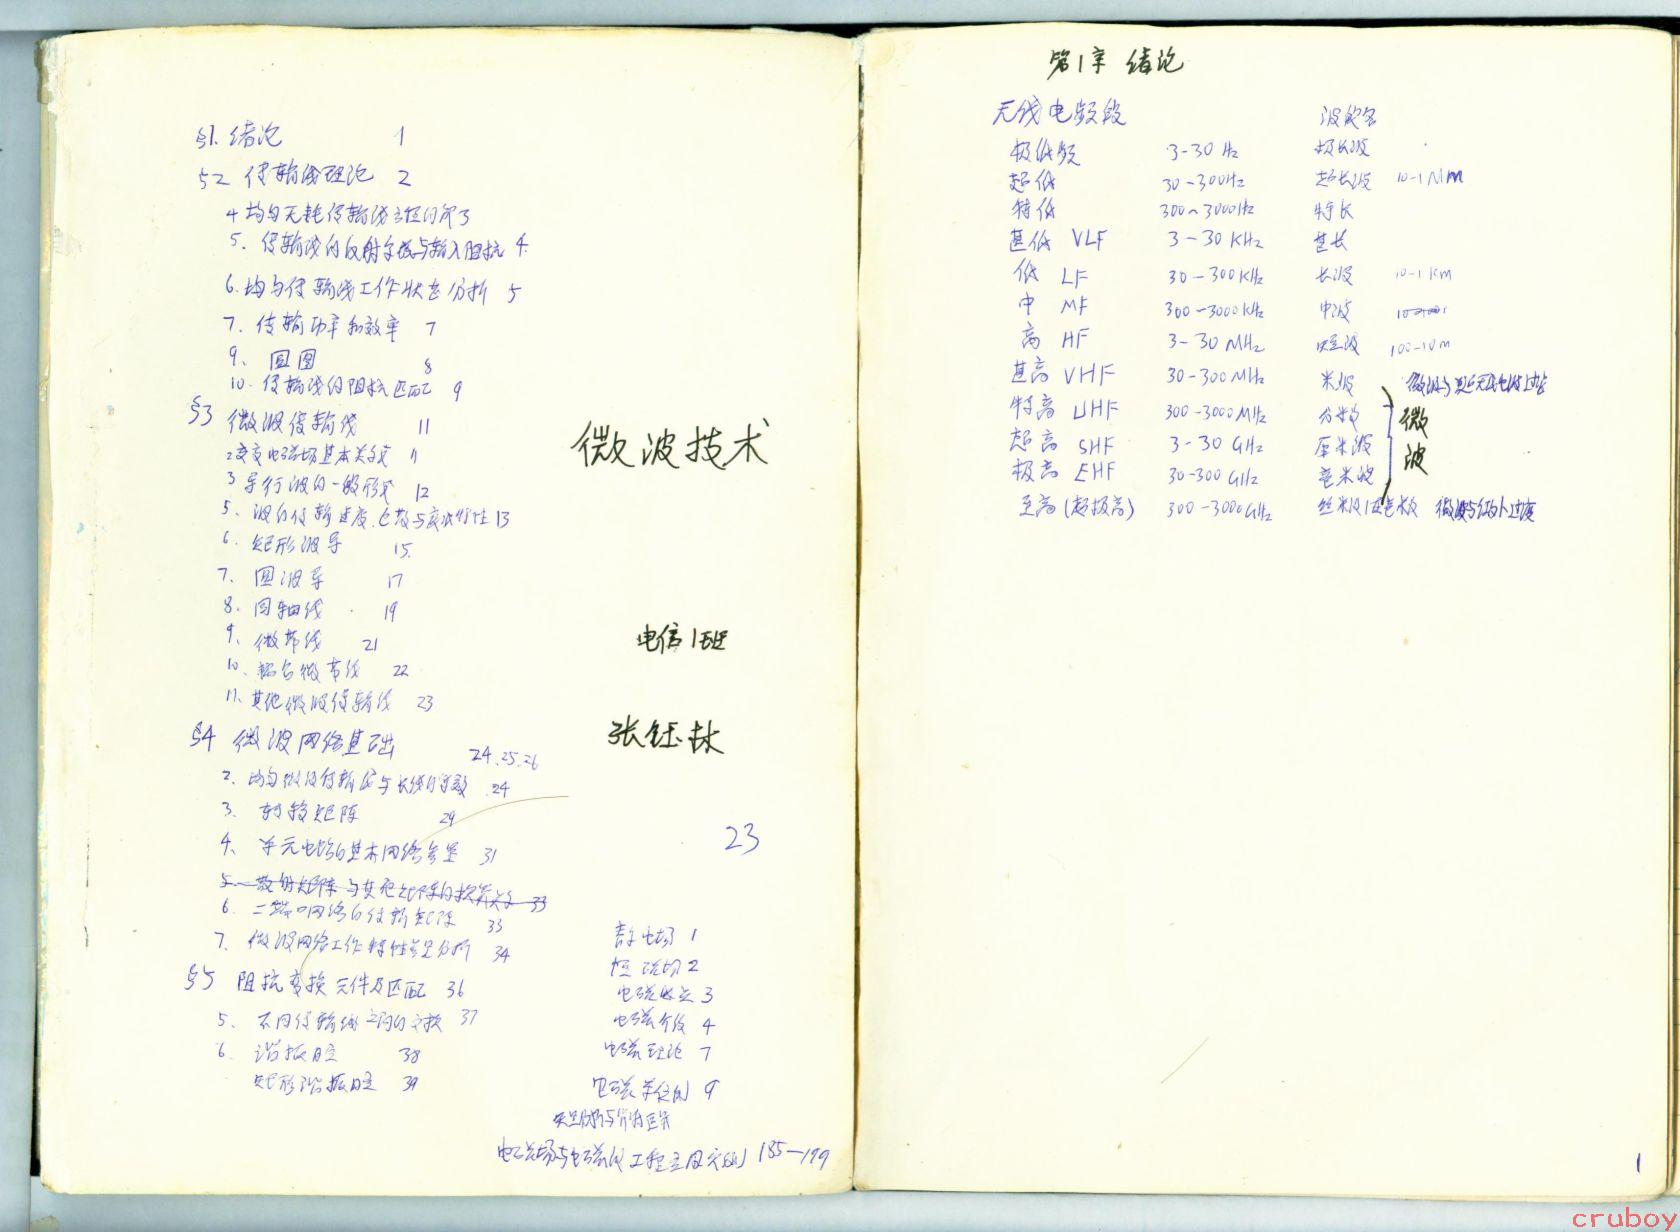 §1. 绪论 1
§2 传输线理论 2
4 均匀无耗传输线方程的解 3
5. 传输线的反射系数与输入阻抗 4.
6. 均匀传输线工作状态分析 5
7. 传输功率和效率 7
9、 圆图 8
10. 传输线的阻抗匹配 9
§3 微波传输线 11
2 交变电磁场基本关系式 11
3 导行波的一般形式 12
5. 波的传输速度、色散与衰减特性 13
6. 矩形波导 15.
7. 圆波导 17
8. 同轴线 19
9、 微带线 21
10、 耦合微带线 22
11、 其他微波传输线 23
§4 微波网络基础 24.25.26
2. 均匀微波传输线与长线的等效 24
3. 转移矩阵 29
4、 单元电路的基本网络参量 31
5. 散射矩阵与其他矩阵的换算关系 33
6. 二端口网络的传输矩阵 33
7. 微波网络工作特性参量分析 34
§5 阻抗变换元件及匹配 36
5、 不同传输线之间的变换 37
6. 谐振腔 38
矩形谐振腔 39
微波技术
电信1班
张钰林
23
静电场 1
恒磁场 2
电磁感应 3
电磁介质 4
电磁理论 7
电磁单位制 9
矢量分析与
电磁场与电磁波工程应用实例 185—199
第1章 绪论
无线电频段 波段名
极低频 3-30 Hz 极长波
超低 30-300Hz 超长波 10-1Mm
特低 300~3000Hz 特长
甚低 VLF 3-30 KHz 甚长
低 LF 30-300KHz 长波 10-1km
中 MF 300-3000KHz 中波
高 HF 3-30 MHz 短波 100-10m
甚高 VHF 30-300MHz 米波 微波与普通无线电波过渡
特高 UHF 300-3000MHz 分米波
超高 SHF 3-30 GHz 厘米波
极高 EHF 30-300 GHz 毫米波
微波
至高(超极高) 300-3000GHz 丝米波/亚毫米波 微波与红外过渡
1
cruboy